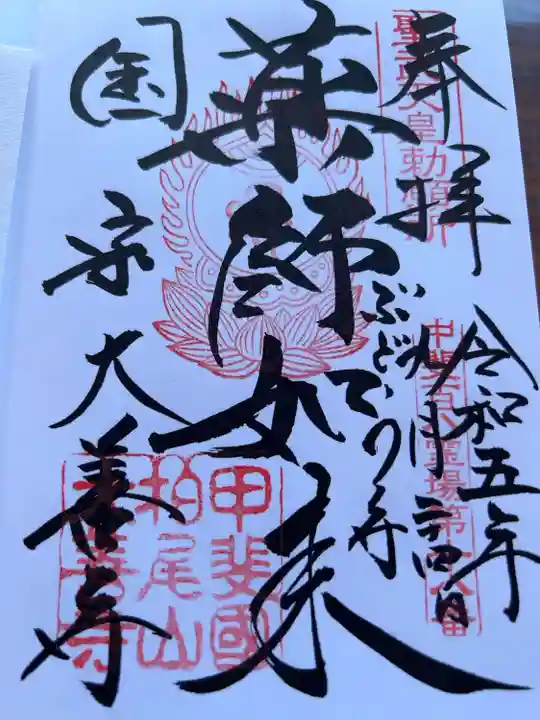 奉拝
聖武天皇勅願所
令和五年
九月二十四日
甲斐百八霊場第
ぶどうでら
薬師如来
国宝
大善寺
甲斐國
柏尾山
大善寺